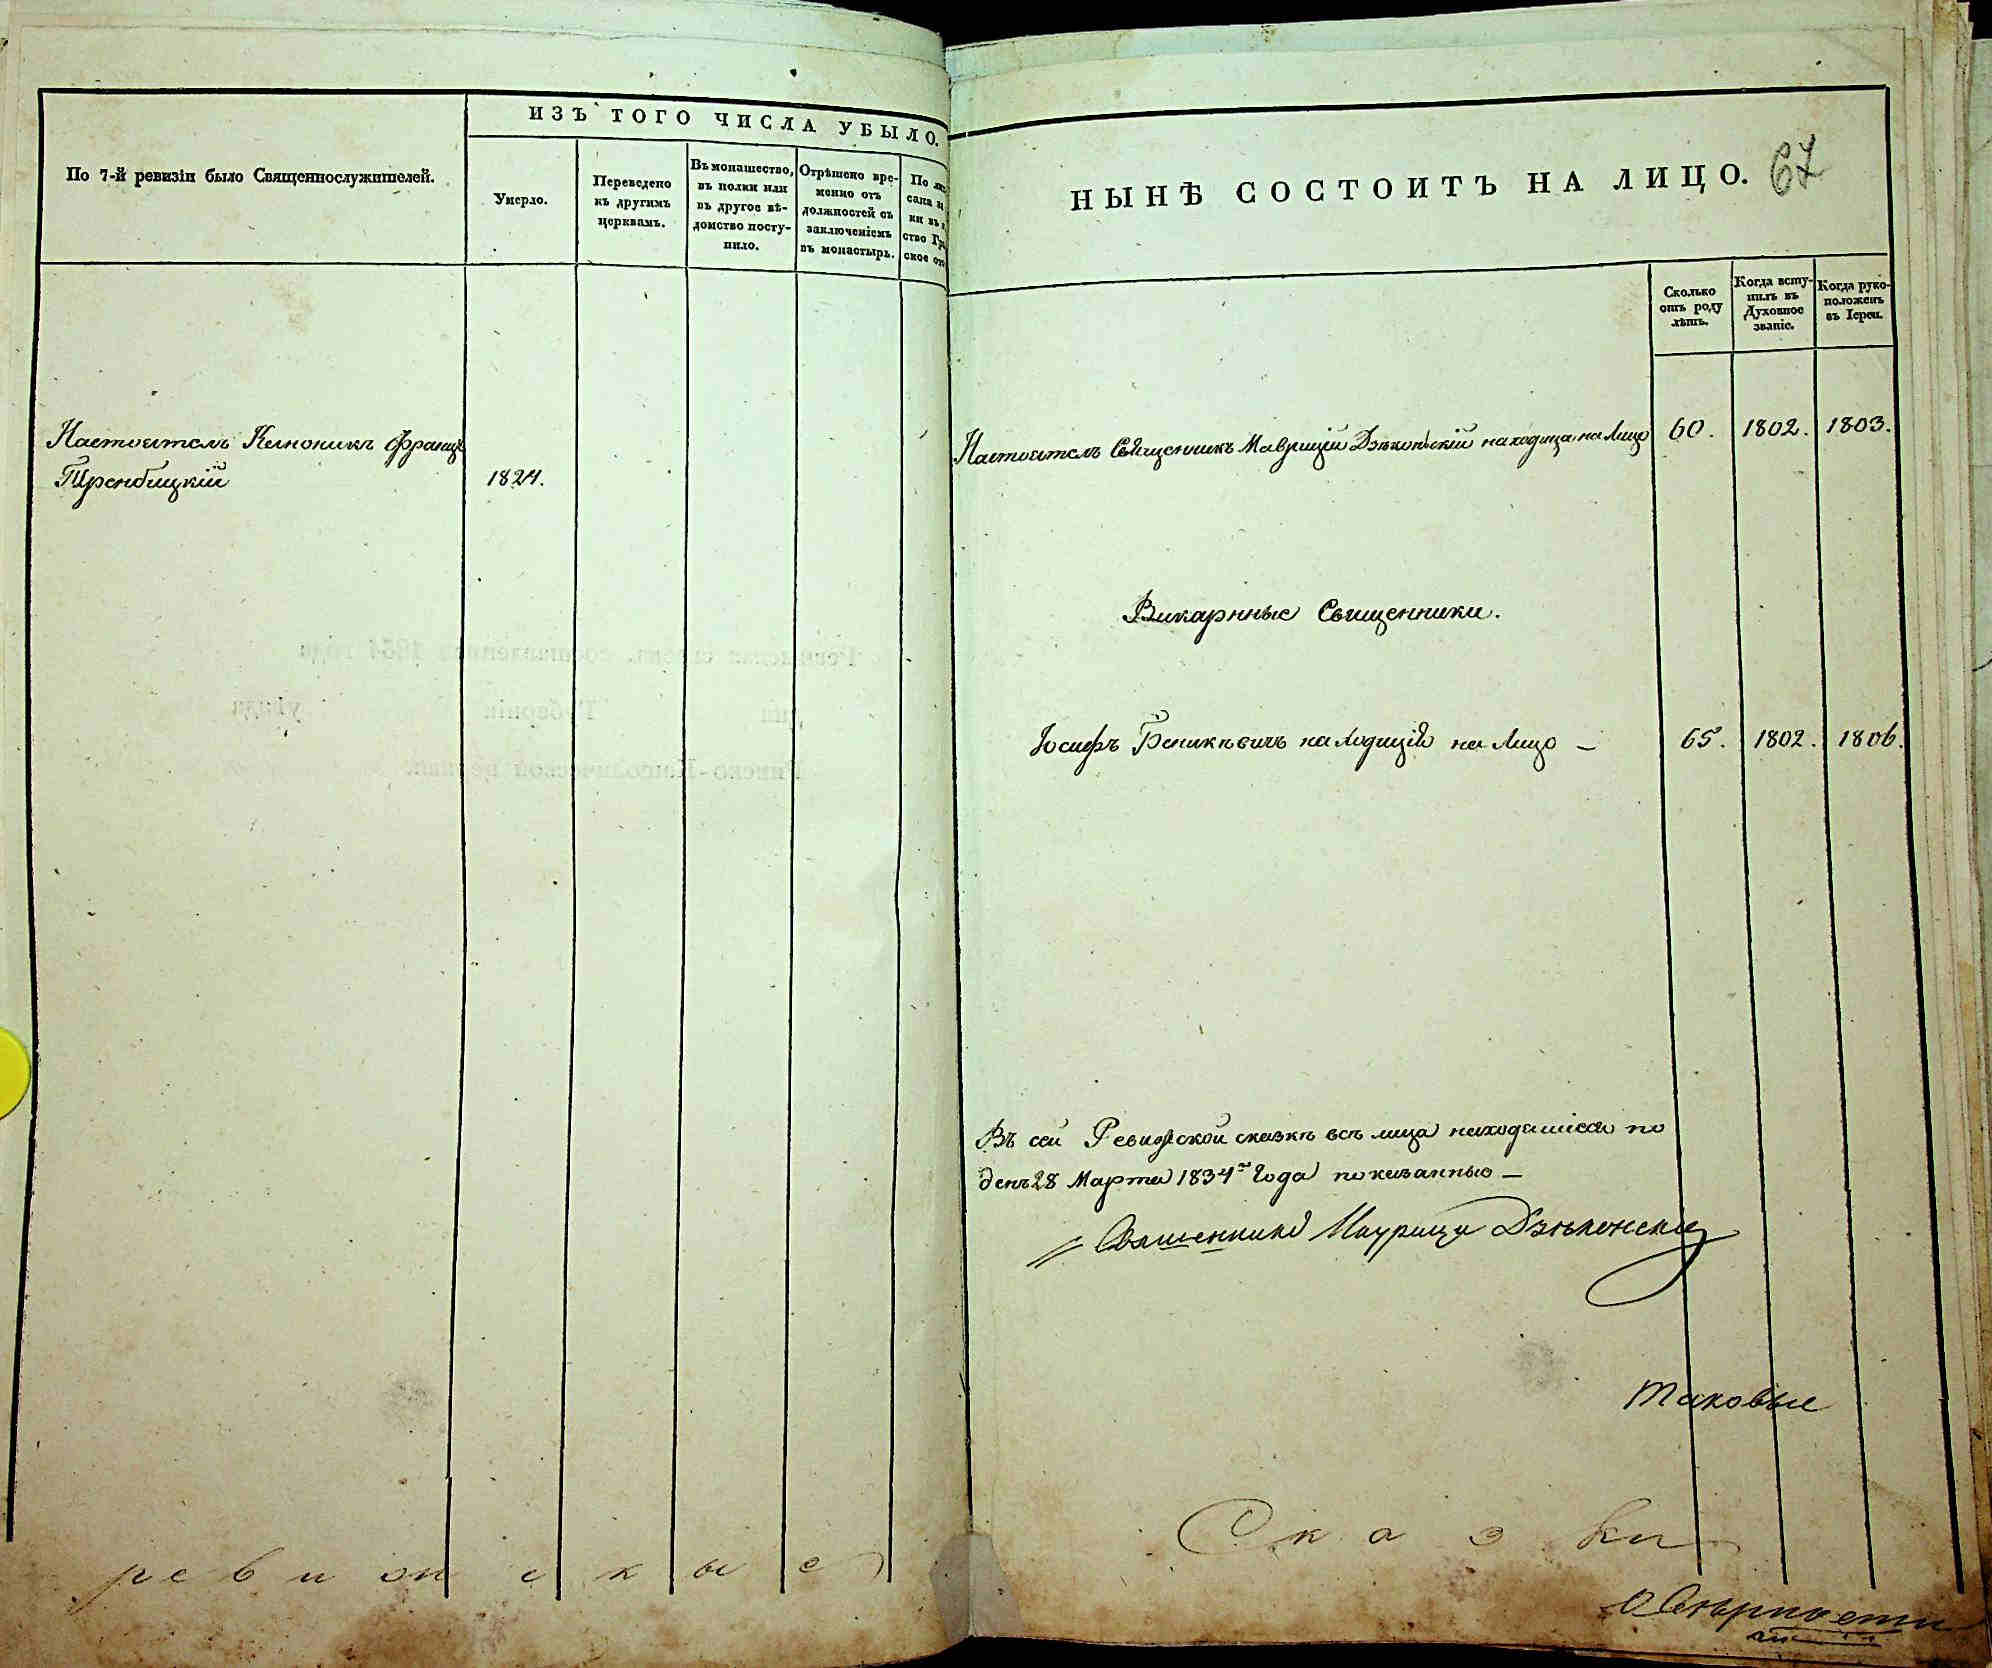 ИЗЪ ТОГО ЧИСЛА УБЫЛО.
По 7-й ревизіи было Священнослужителей.
Умерло.
Переведено
къ другимъ
церквамъ.
Въ монашество,
въ полки или
въ другое вѣ-
домство посту-
пило.
Отрѣшено вре-
менно отъ
должностей съ
заключеніемъ
въ монастырь.
По
сана
ки въ
ство
ское
Настоятель Каноникъ Францъ
Трембицкій
1824.
ревизскые
НЫНѢ СОСТОИТЪ НА ЛИЦО.
67
Сколько
отъ роду
лѣтъ.
Когда всту-
пилъ въ
Духовное
званіе.
Когда руко-
положенъ
въ Іереи.
Настоятель Священникъ Маврицій Дзѣконскій находица на Лицо
60. 1802. 1803.
Викарнные Священники.
Іосифъ на Лицо —
65. 1802. 1806.
Въ сей Ревизской сказкѣ всѣ лица находящіеся по
день 28 Марта 1834го Года показанные —
Священникъ Маурици Дзѣконски
Таковые
Сказки